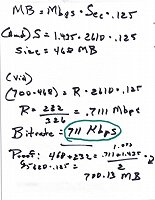 MB = Mbps · Sec · .125
(aud) S = 1.435 · 2610 · .125
size = 468 MB
(Vid)
(700-468) = R · 2610 · .125
R = 232/326 = .7111 Mbps
Bitrate = 711 Kbps
Proof: 468+232 = .711+1.435
2
700.13 MB